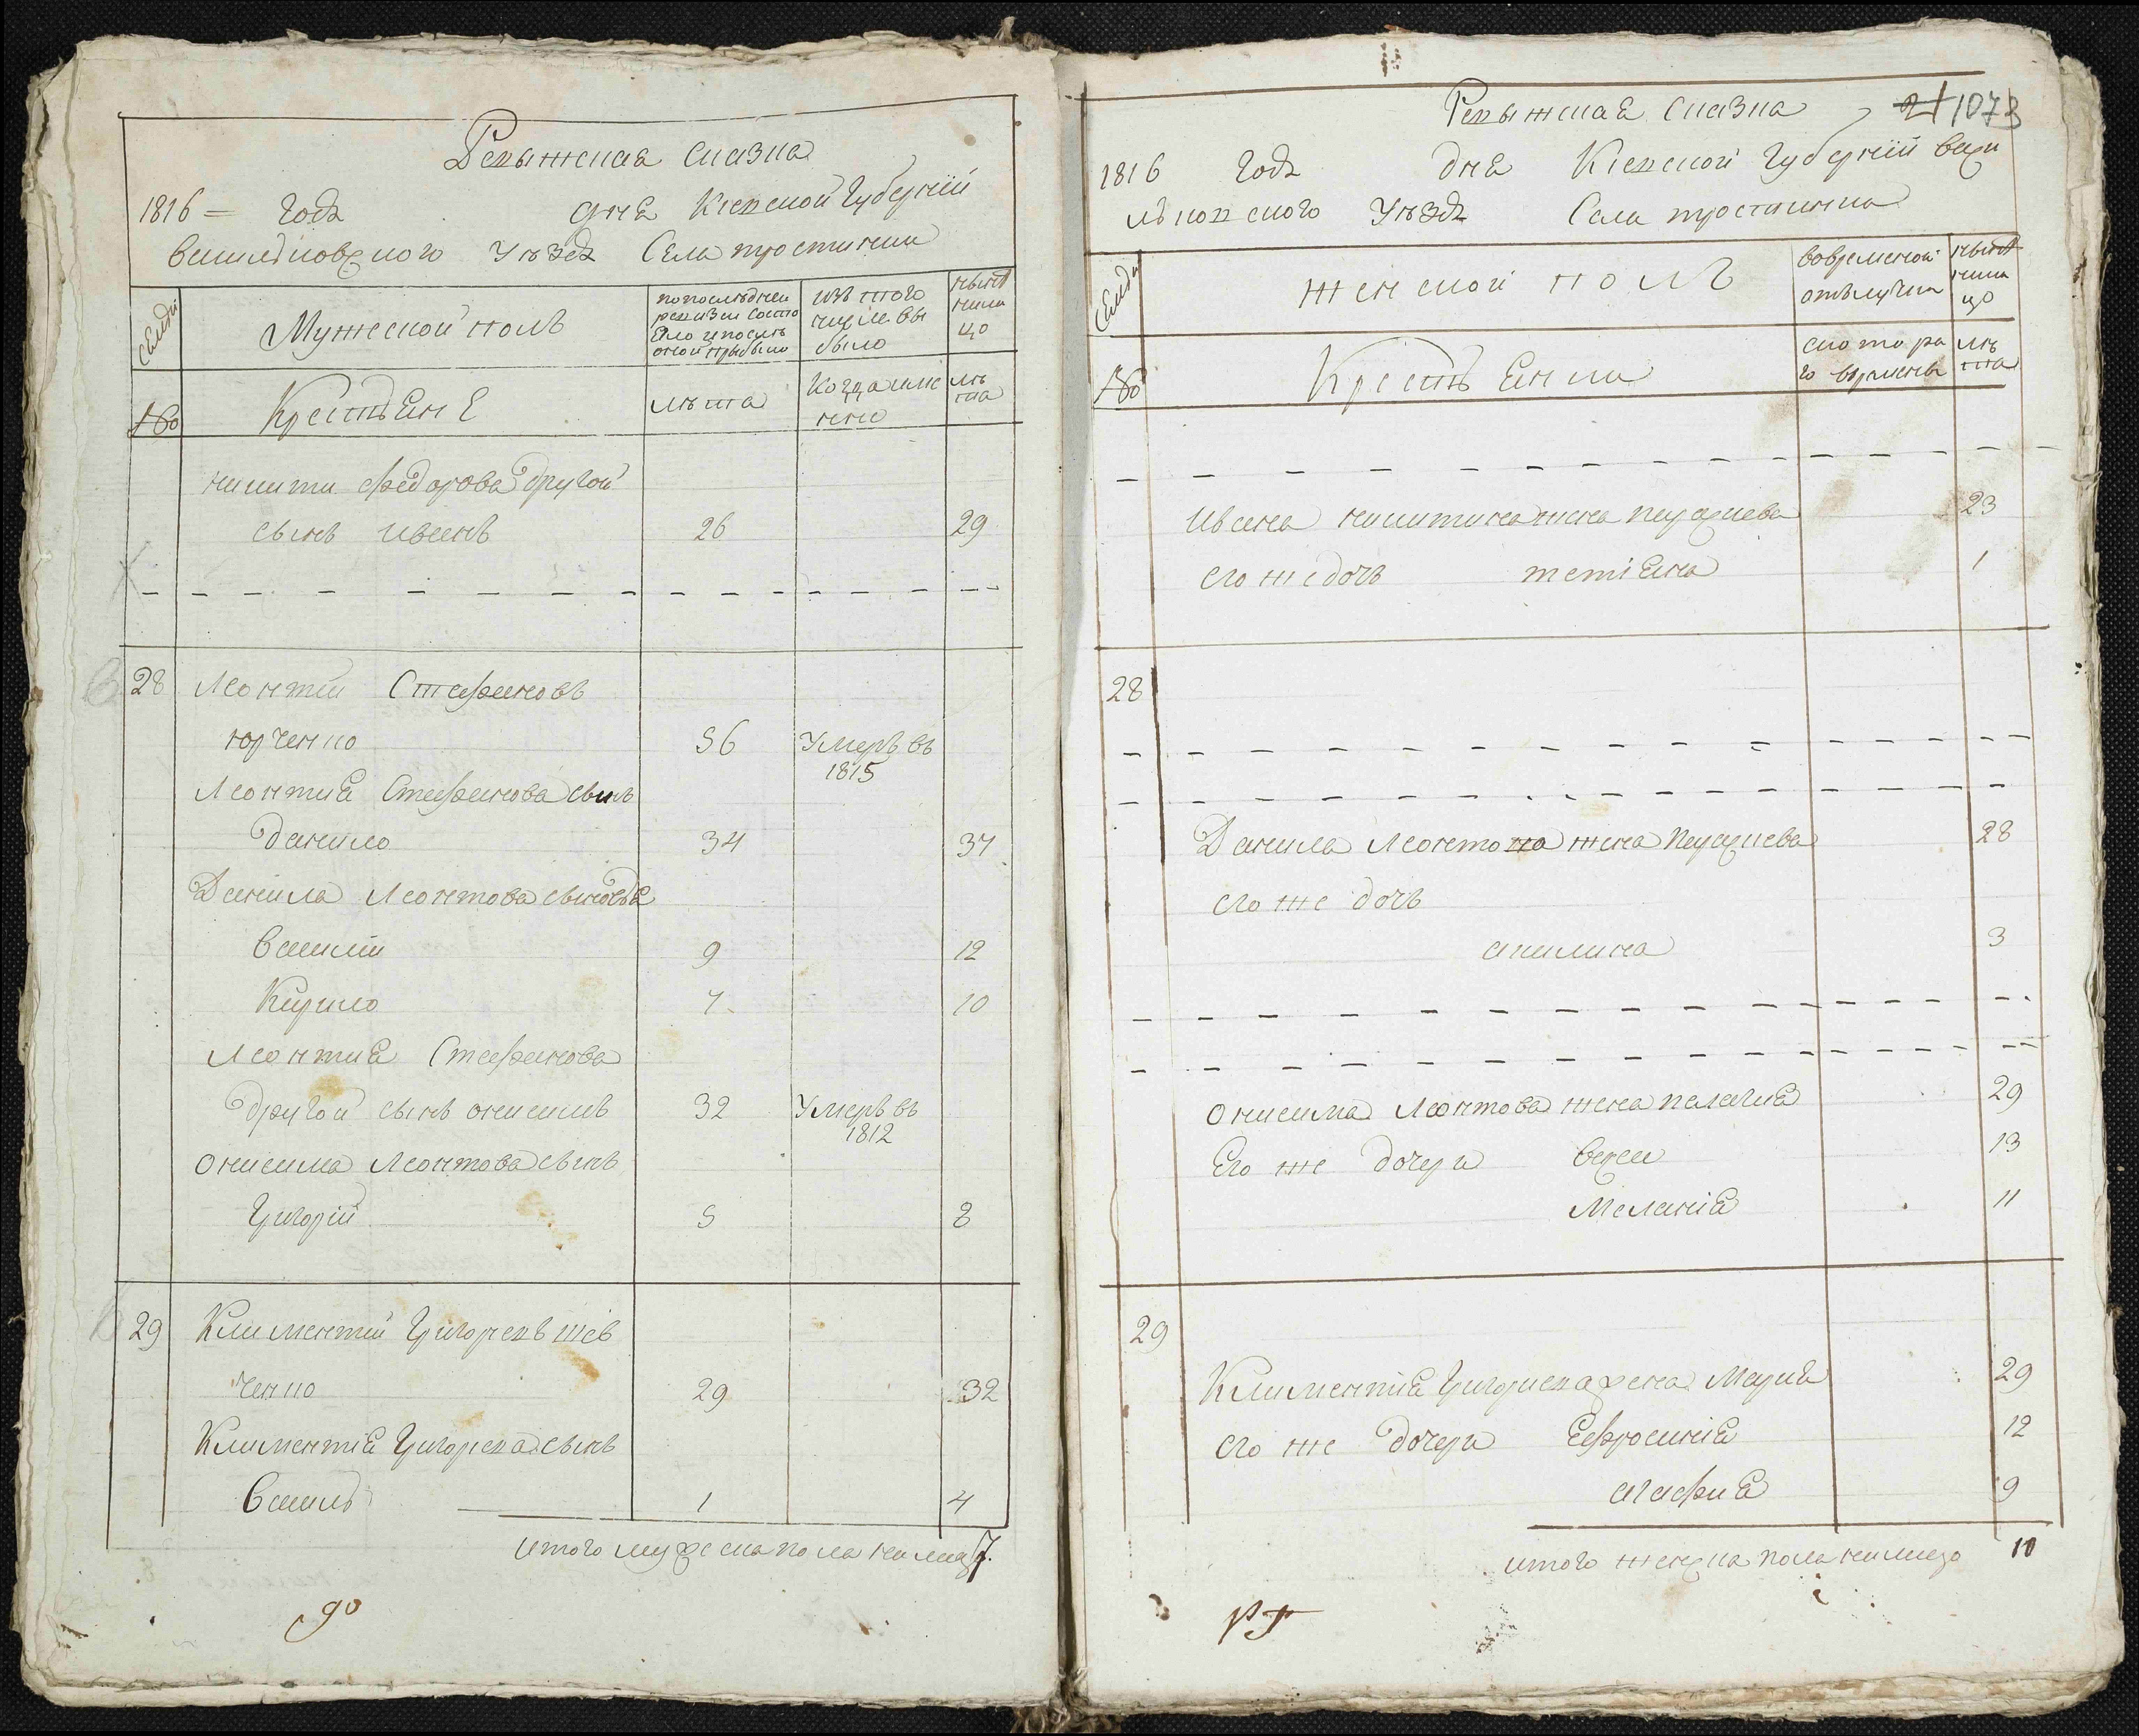 Ревыжская Сказка
1816 = Года дня Киевской Губернии
васильковского Уезда Села простинки
Семьи
Мужеской полъ
попоследнеи
ревизии состо
яло ипосле
оной прибыло
изъ того
числа вы
было
ныне
нали
цо
№
Крестьяне
лѣта
Когда име
нно
лѣ
та
никити федорова другой
сынъ иванъ 26 29
28 Леонтий Стефановъ
юрченко 56 Умеръ въ
1815
Леонтия Стефанова сынъ
данило 34 37
Данила Леонтова сыновья
василий 9 12
Кирило 7 10
Леонтия Стефанова
другой сынъ онисимъ 32 Умеръ въ
1812
онисима Леонтова сынъ
Григорий 5 8
29 Климентий Григоревъ шев
ченко 29 32
Климентия Григорева сынъ
василь 1 4
итого мужеска пола налицо 7.
до
21 1073
Ревыжская Сказка
1816 Года дня Киевской Губернии васи
льковского Уезда Села простинки
Семьи
женской полъ
вовременной
отълучки
ныне
нали
цо
№
Крестьянки
скотора
го времены
лѣ
та
ивана никитина жена параскева 23
его же дочь тетіяна 1
28
Данила Леонтова жена параскева 28
его же дочь
акилина 3
онисима Леонтова жена пелагия 29
Его же дочери васса 13
Меланія 11
29
Климентія Григориева жена Мария 29
его же дочери Ефросинія 12
агафия 9
итого женска пола налицо 10